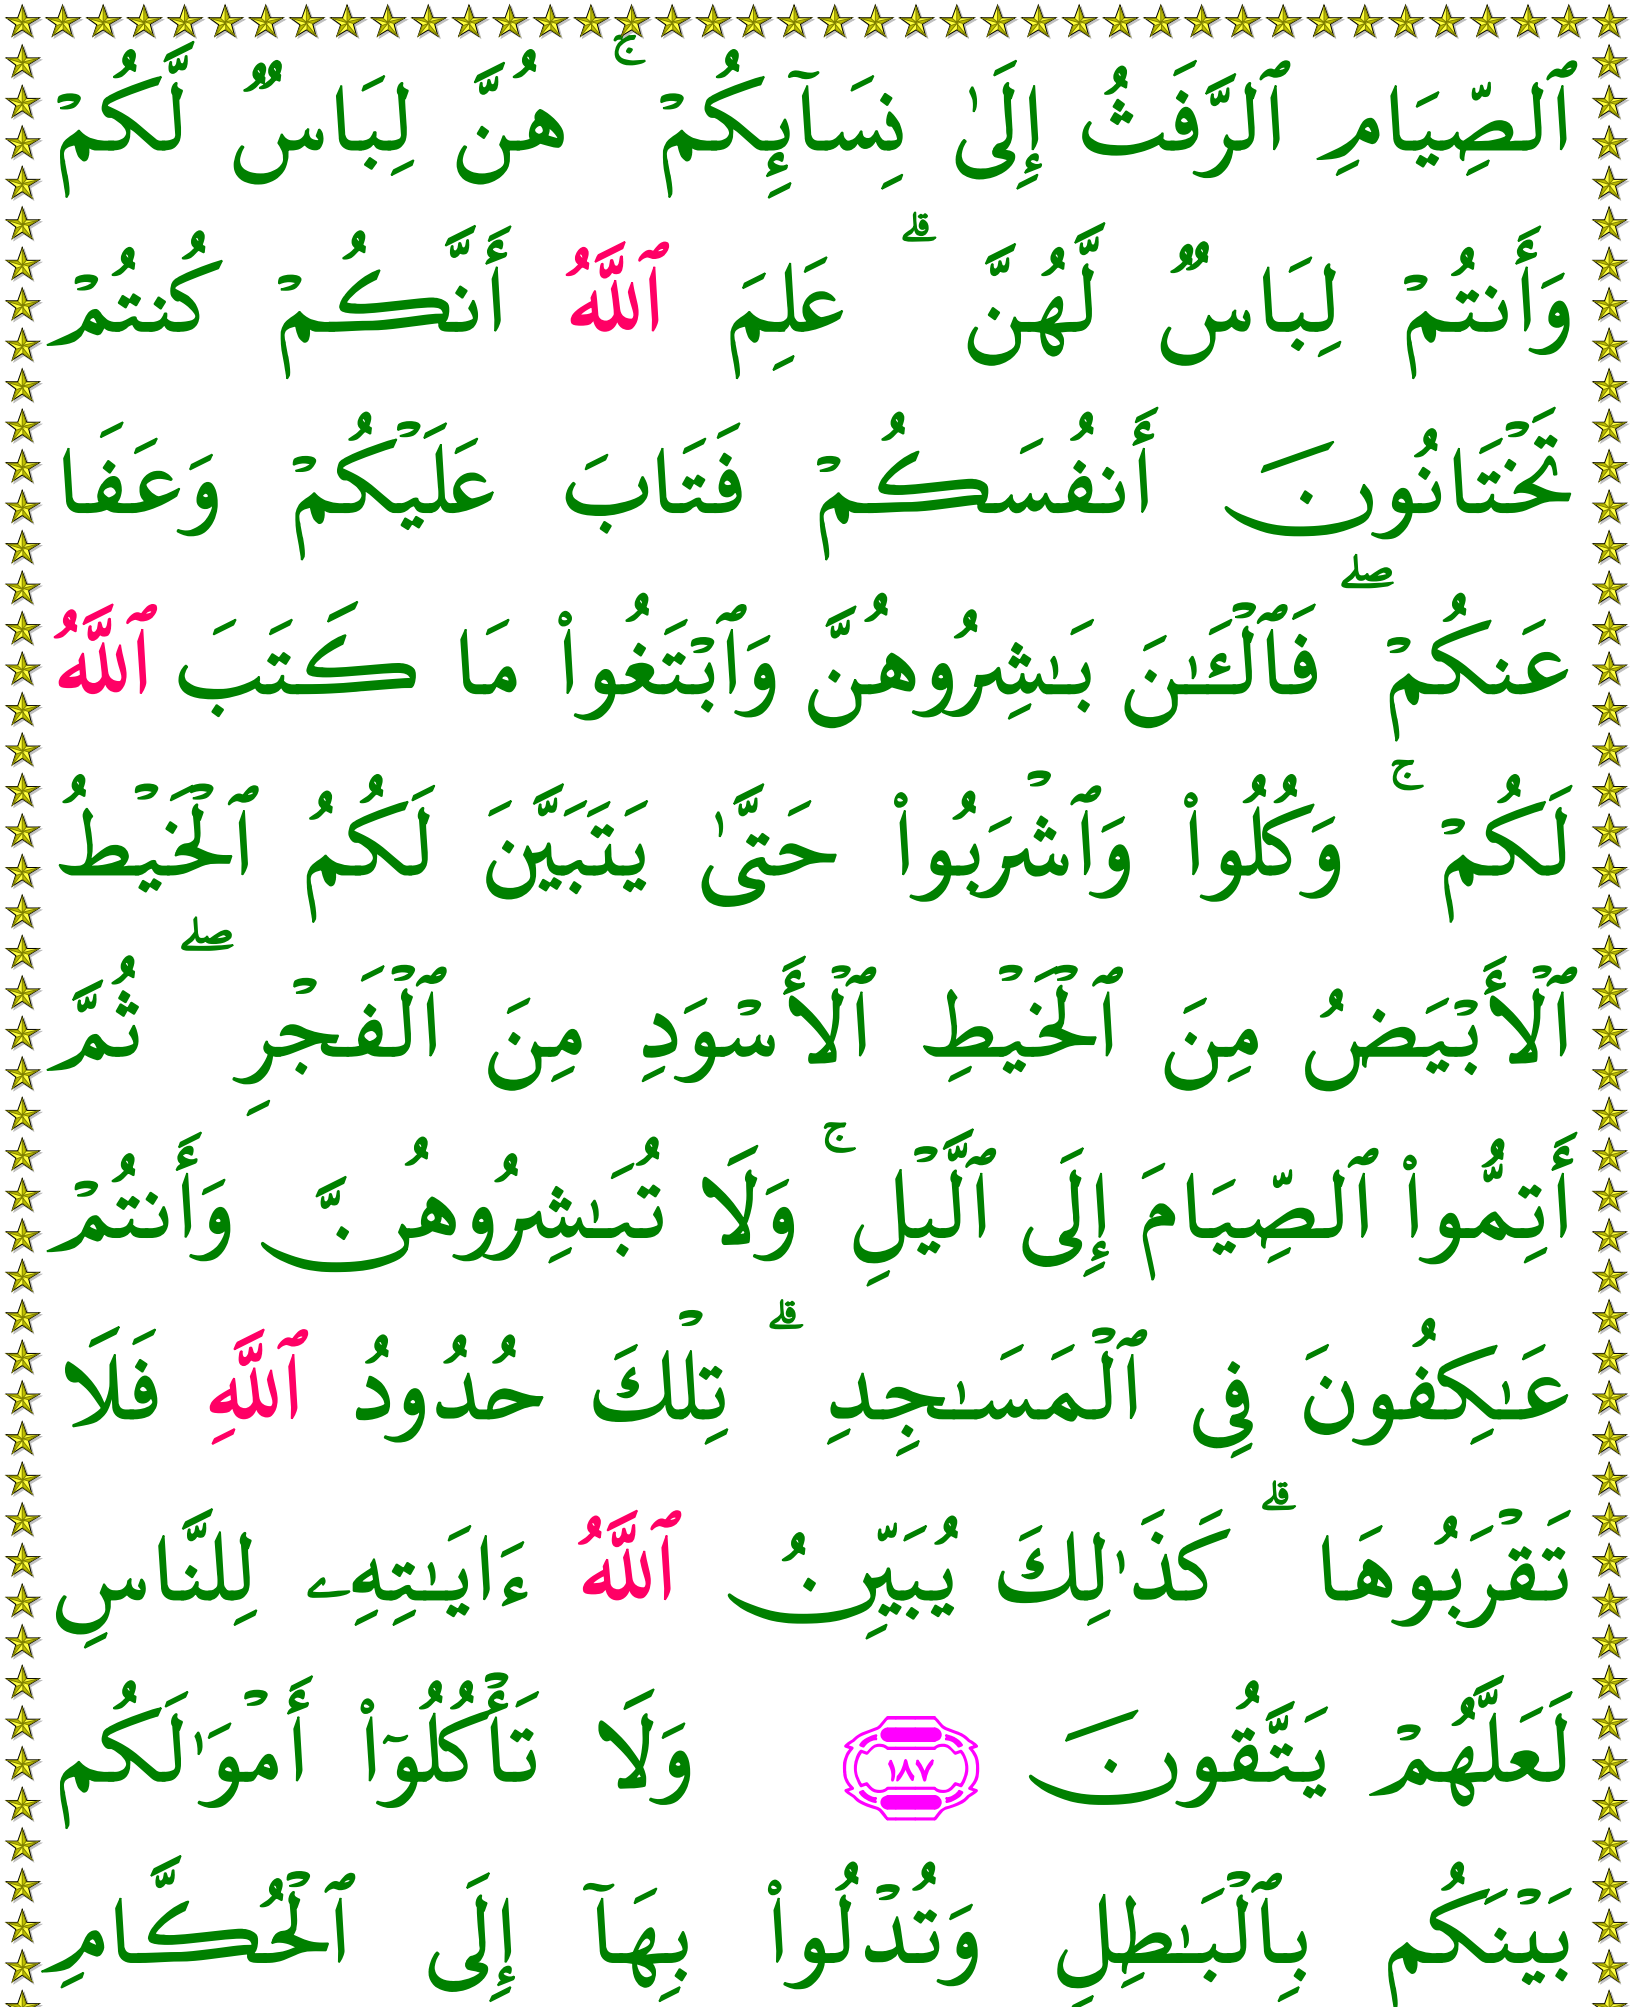 ٱلصِّيَامِ ٱلرَّفَثُ إِلَىٰ نِسَآئِكُمْ ۚ هُنَّ لِبَاسٌ لَّكُمْ
وَأَنتُمْ لِبَاسٌ لَّهُنَّ ۗ عَلِمَ ٱللَّهُ أَنَّكُمْ كُنتُمْ
تَخْتَانُونَ أَنفُسَكُمْ فَتَابَ عَلَيْكُمْ وَعَفَا
عَنكُمْ ۖ فَٱلْـَٔـٰنَ بَـٰشِرُوهُنَّ وَٱبْتَغُوا۟ مَا كَتَبَ ٱللَّهُ
لَكُمْ ۚ وَكُلُوا۟ وَٱشْرَبُوا۟ حَتَّىٰ يَتَبَيَّنَ لَكُمُ ٱلْخَيْطُ
ٱلْأَبْيَضُ مِنَ ٱلْخَيْطِ ٱلْأَسْوَدِ مِنَ ٱلْفَجْرِ ۖ ثُمَّ
أَتِمُّوا۟ ٱلصِّيَامَ إِلَى ٱلَّيْلِ ۚ وَلَا تُبَـٰشِرُوهُنَّ وَأَنتُمْ
عَـٰكِفُونَ فِى ٱلْمَسَـٰجِدِ ۗ تِلْكَ حُدُودُ ٱللَّهِ فَلَا
تَقْرَبُوهَا ۗ كَذَٰلِكَ يُبَيِّنُ ٱللَّهُ ءَايَـٰتِهِۦ لِلنَّاسِ
لَعَلَّهُمْ يَتَّقُونَ ١٨٧ وَلَا تَأْكُلُوٓا۟ أَمْوَٰلَكُم
بَيْنَكُم بِٱلْبَـٰطِلِ وَتُدْلُوا۟ بِهَآ إِلَى ٱلْحُكَّامِ